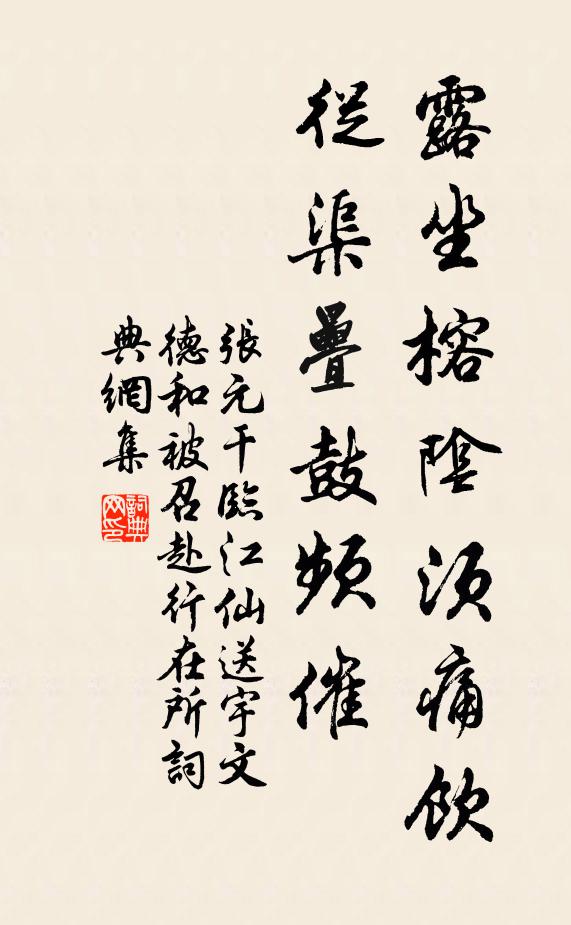 露坐榕陰須痛飲
從渠疊鼓頻催
張元干臨江仙送宇文
德和被召赴行在所詞
典網集
詞典
网印